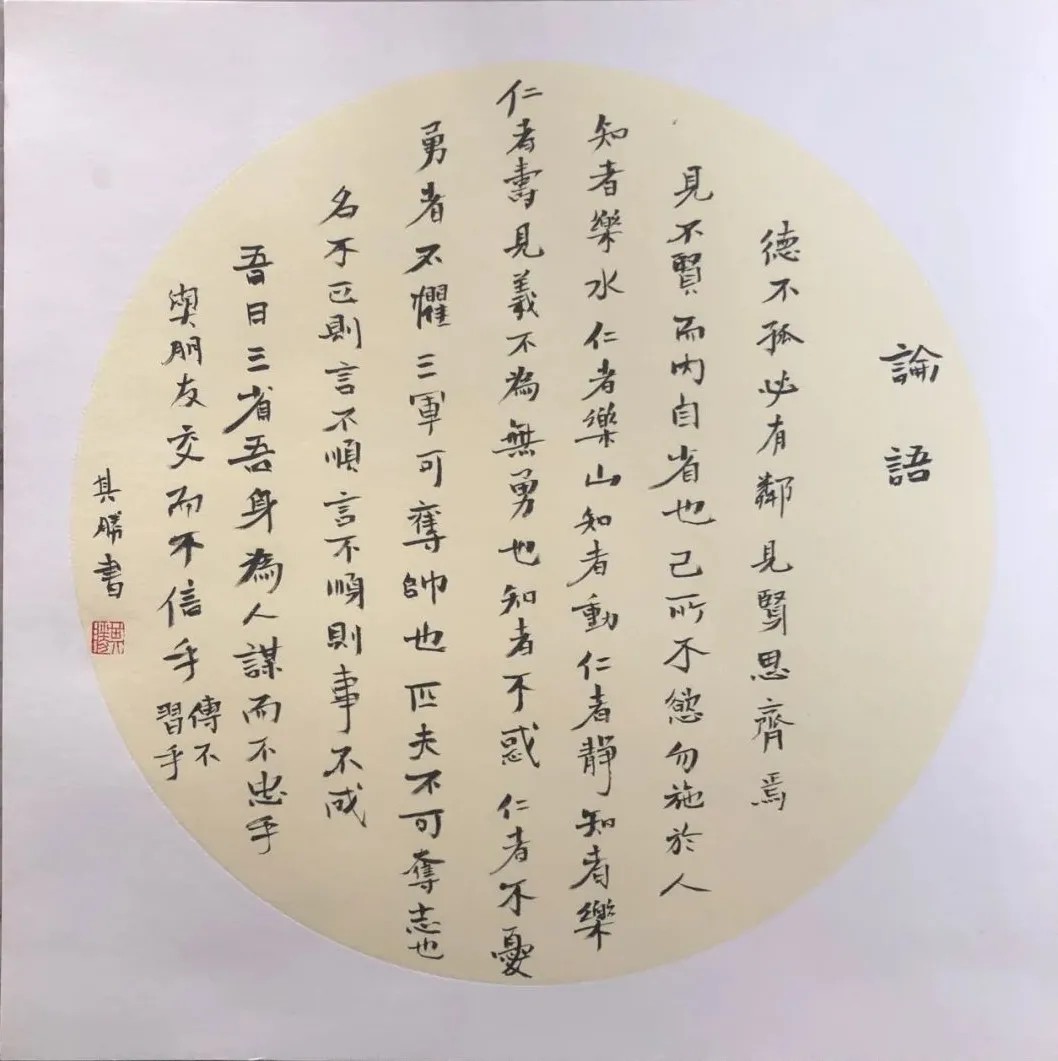 論語
德不孤必有鄰見賢思齊焉
見不賢而内自省也己所不慾勿施於人
知者樂水仁者樂山知者動仁者靜知者樂
仁者壽見義不為無勇也知者不惑仁者不憂
勇者不懼三軍可奪帥也匹夫不可奪志也
名不正則言不順言不順則事不成
吾日三省吾身為人謀而不忠乎
與朋友交而不信乎傳不習乎
其勝書